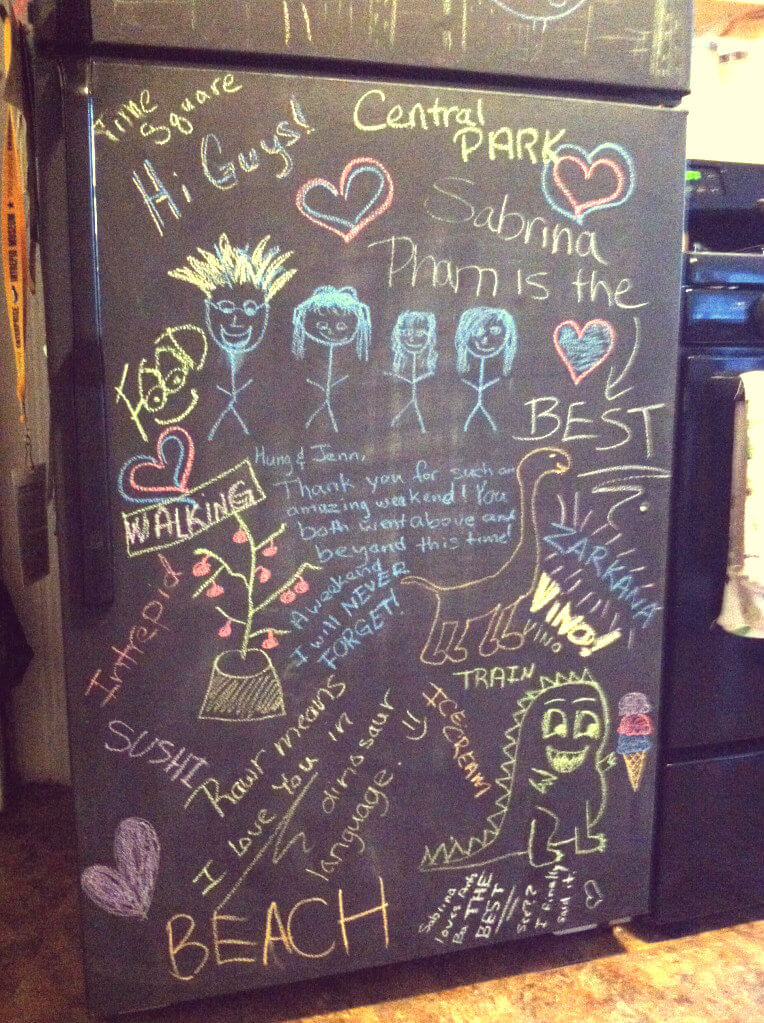 Time
Square
Hi Guys!
Central
PARK
Sabrina
Pham is the
BEST
FOOD
WALKING
Hung & Jenn,
Thank you for such an
amazing weekend! You
both went above and
beyond this time!
A weekend
I will NEVER
FORGET!
ZARKANA
VINO!
VINO
Intrepid
TRAIN
SUSHI
Rawr means
I love you in
dinosaur
language.
ICE CREAM
BEACH
Sabrina
loves
Ba THE
BEST
See??
I finally
said it!